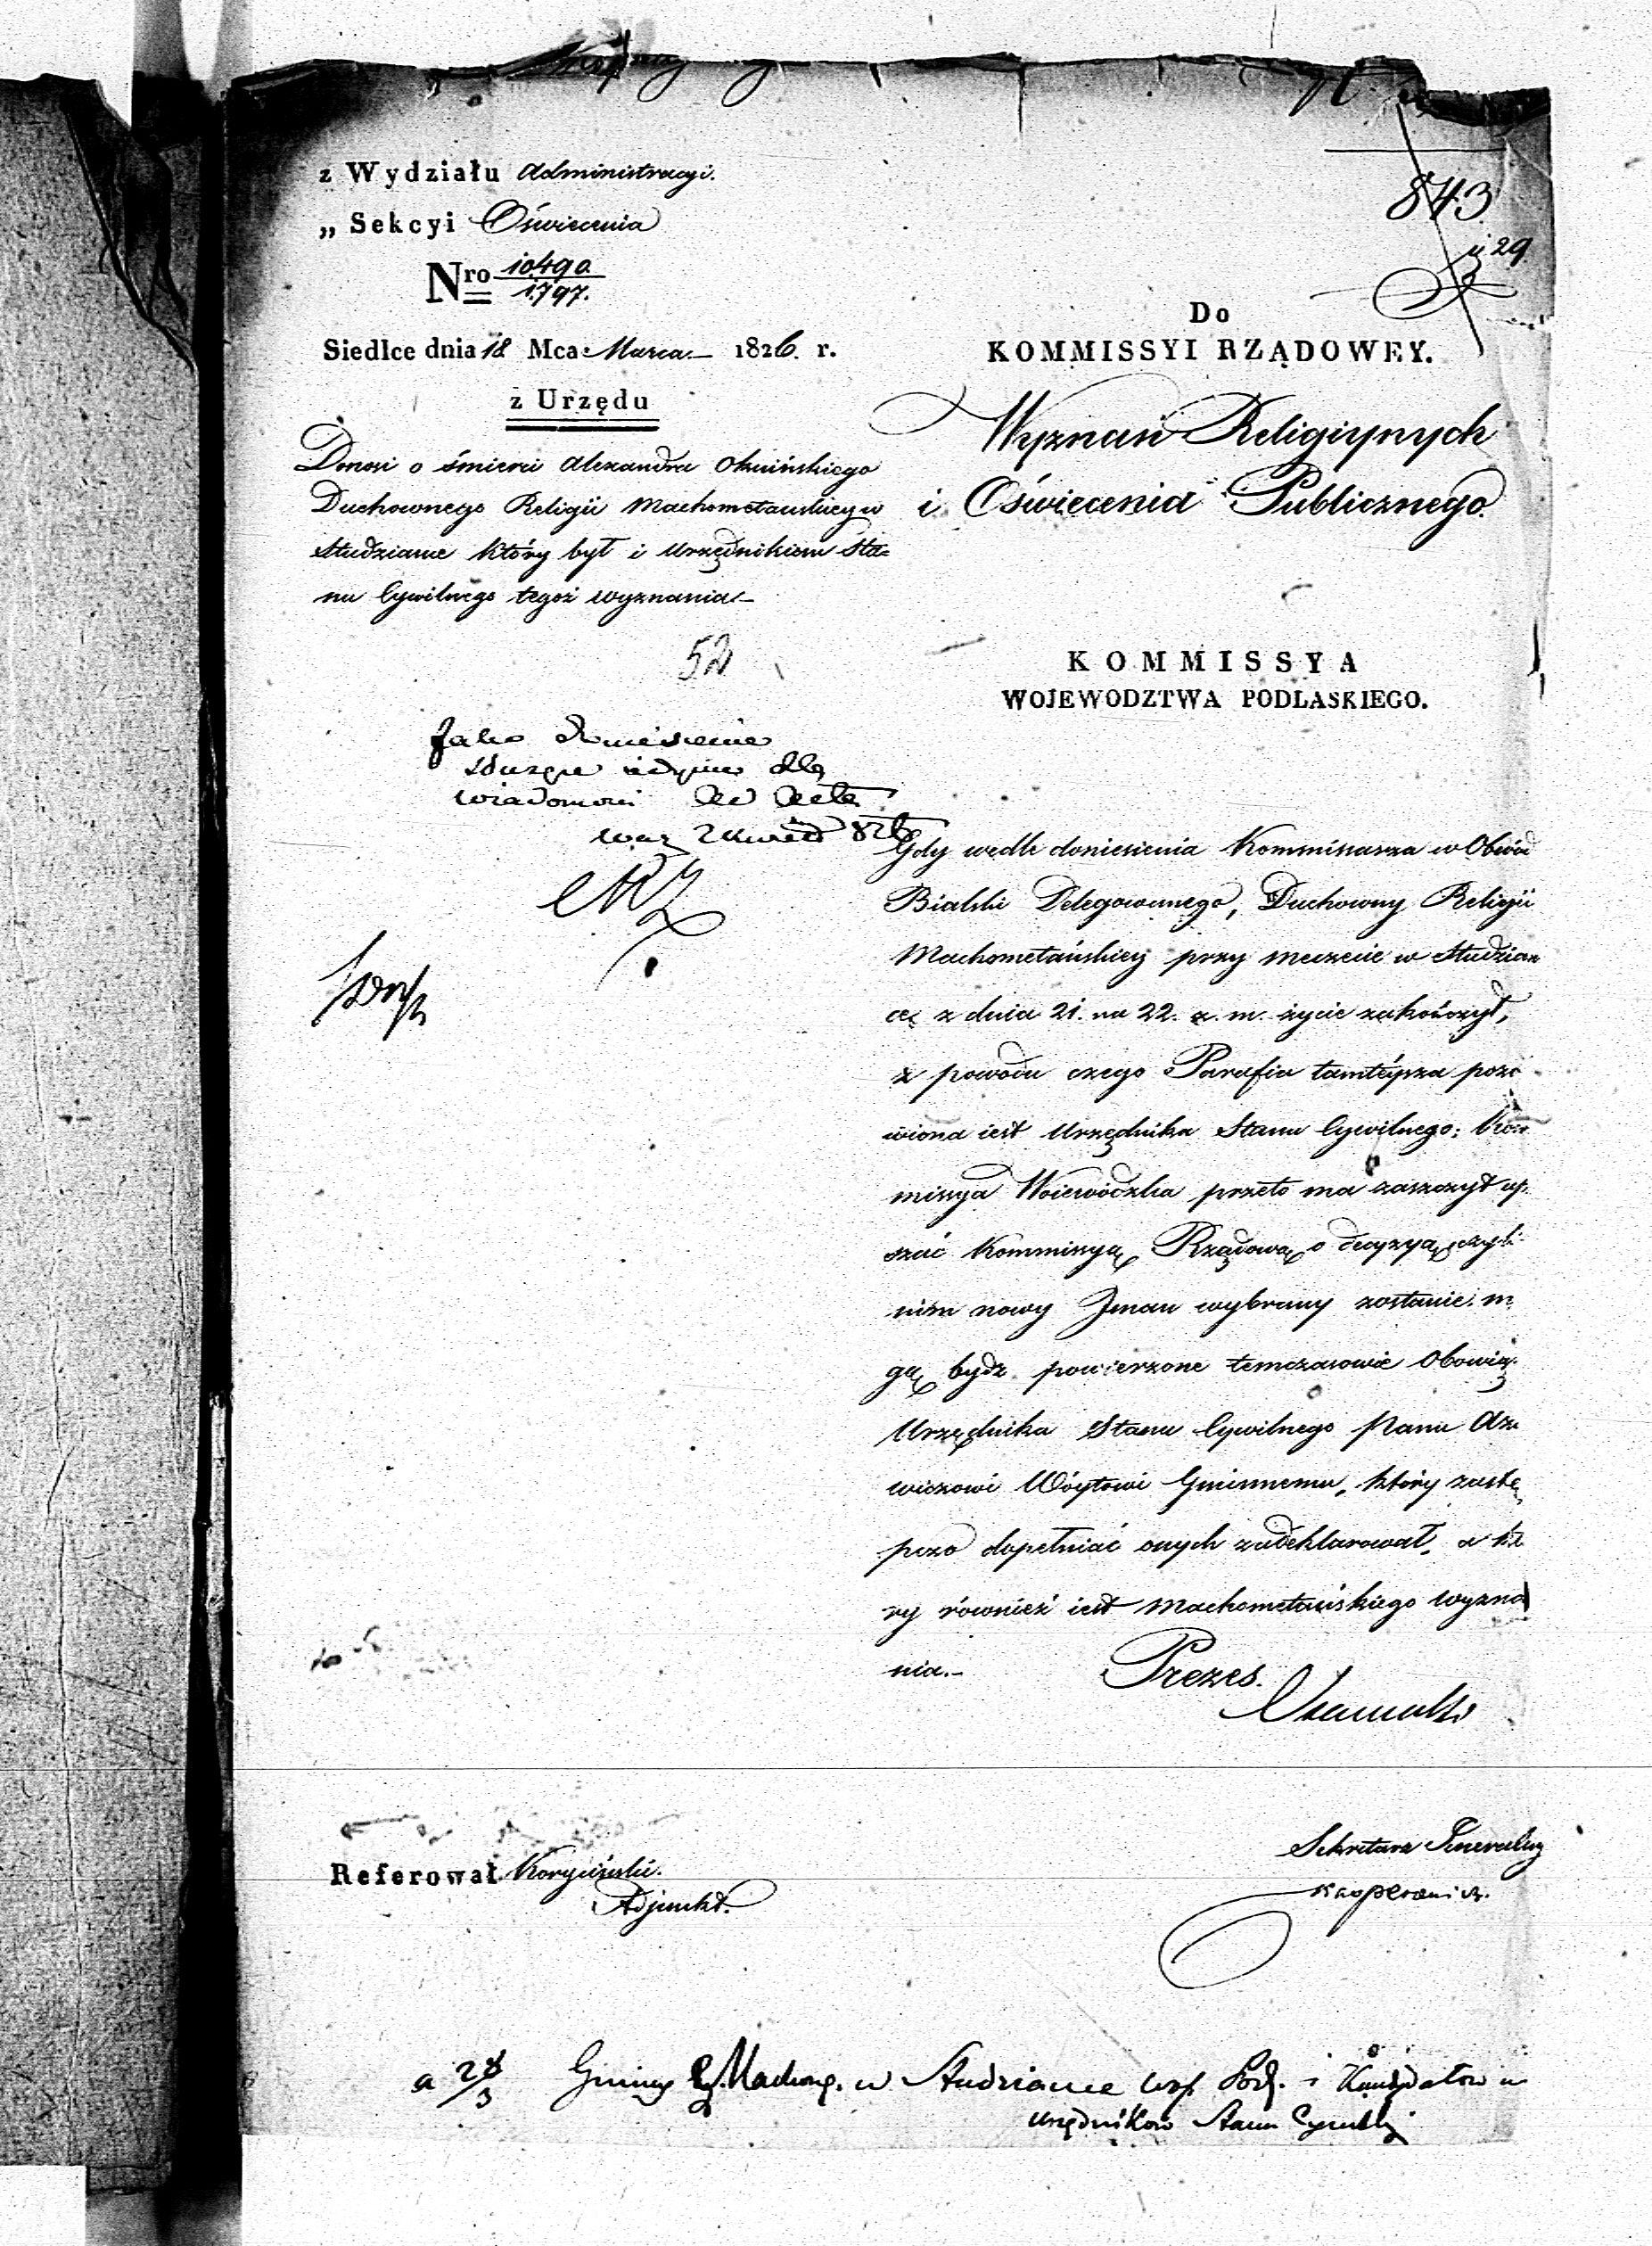 z Wydziału Administracyi.
„ Sekcyi Oświecenia
Nro 10490
1797.
Siedlce dnia 18 Mca Marca 1826. r.
z Urzędu
Donosi o śmierci Alexandra Okuińskiego
Duchownego Religii Machometańskiey w
Studziance który był i Urzędnikiem Sta=
nu Cywilnego tegoż wyznania
52
843
29
3
Do
KOMMISSYI RZĄDOWEY.
Wyznań Religiynych
i Oświecenia Publicznego.
KOMMISSYA
WOJEWODZTWA PODLASKIEGO.
Jako doniesienie
służące jedynie dla
wiadomości Ad Acta
Gdy wedle doniesienia Kommissarza w Obwód
Bialski Delegowanego, Duchowny Religii
Machometańskiey przy meczecie w Studzian
ce z dnia 21. na 22. z. m. życie zakończył,
z powodu czego Parafia tamteysza pozo
wiona iest Urzędnika Stanu Cywilnego; Kom
missya Woiewódzka przeto ma zaszczyt up
szać Kommissyą Rządową o decyzyą, czyli
nim nowy Iman wybrany zostanie, m
gą bydź powierzone temczasowie Obowią
Urzędnika Stanu Cywilnego Panu Aza
wiczowi Wóytowi Gminnemu, który zastę
pczo dopełniać onych zadeklarował, a któ
ry również iest Machometańskiego wyzna
nia.
Prezes.
Sekretarz Generalny
Kasperowicz.
Referował Koryciński.
Adjunkt.
a 28/3 Gminy Machom. w Studziance Wof. Podl. i Kandydatów
Urzędników Stanu Cywilny